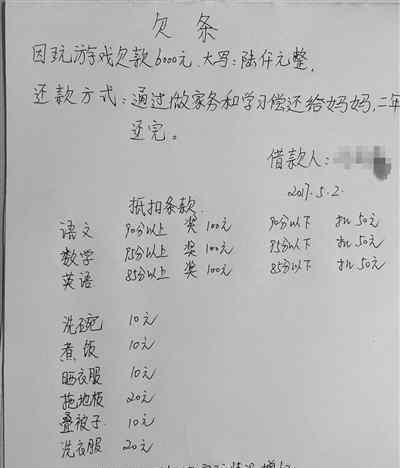 欠条
因玩游戏欠款6000元.大写:陆仟元整.
还款方式:通过做家务和学习偿还给妈妈,二年
还完。
借款人:
2017.5.2.
抵扣条款.
语文 90分以上 奖100元 90分以下 扣50元
数学 95分以上 奖100元 95分以下 扣50元
英语 85分以上 奖100元 85分以下 扣50元
洗碗 10元
煮饭 10元
晒衣服 10元
拖地板 20元
叠被子 10元
洗衣服 20元